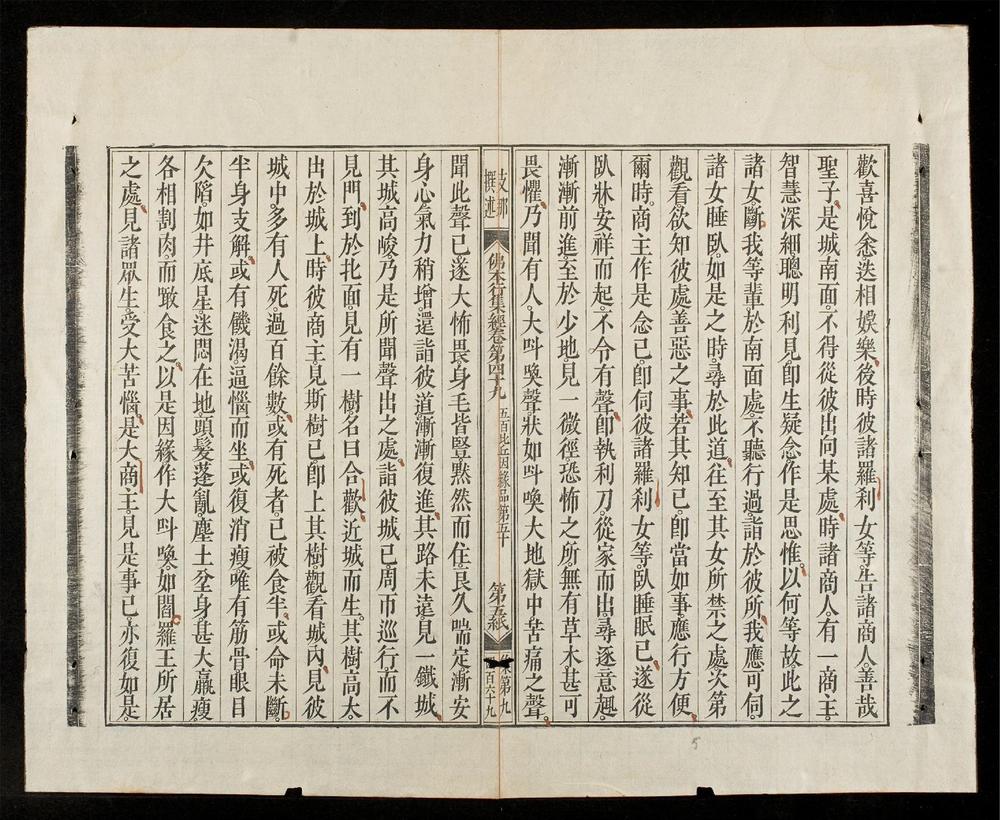 歡喜悅念迭相娛樂後時彼諸羅刹女等告諸商人善哉
聖子是城南面不得從彼出向某處時諸商人有一商主
智慧深細聰明利見卽生疑念作是思惟以何等故此之
諸女斷我等輩於南面處不聽行過詣於彼所我應可伺
諸女睡臥如是之時尋於此道往至其女所禁之處次第
觀看欲知彼處善惡之事若其知已卽當如事應行方便
爾時商主作是念已卽伺彼諸羅刹女等臥睡眠已遂從
臥牀安祥而起不令有聲卽執利刀從家而出尋逐意趣
漸漸前進至於少地見一微徑恐怖之所無有草木甚可
畏懼乃聞有人大叫喚聲狀如叫喚大地獄中苦痛之聲
支那撰述
佛本行集經卷第四十九
五百比丘因緣品第五十
第五紙
第九
百六十九
聞此聲已遂大怖畏身毛皆豎默然而住良久喘定漸安
身心氣力稍增還詣彼道漸漸復進其路未遠見一鐵城
其城高峻乃是所聞聲出之處詣彼城已周帀巡行而不
見門到於北面見有一樹名曰合歡近城而生其樹高大
出於城上時彼商主見斯樹已卽上其樹觀看城內見彼
城中多有人死過百餘數或有死者已被食半或命未斷
半身支解或有饑渴逼惱而坐或復消瘦唯有筋骨眼目
欠陷如井底星迷悶在地頭髮蓬亂塵土坌身甚大羸瘦
各相割肉而噉食之以是因緣作大叫喚如閻羅王所居
之處見諸眾生受大苦惱是大商主見是事已亦復如是
5